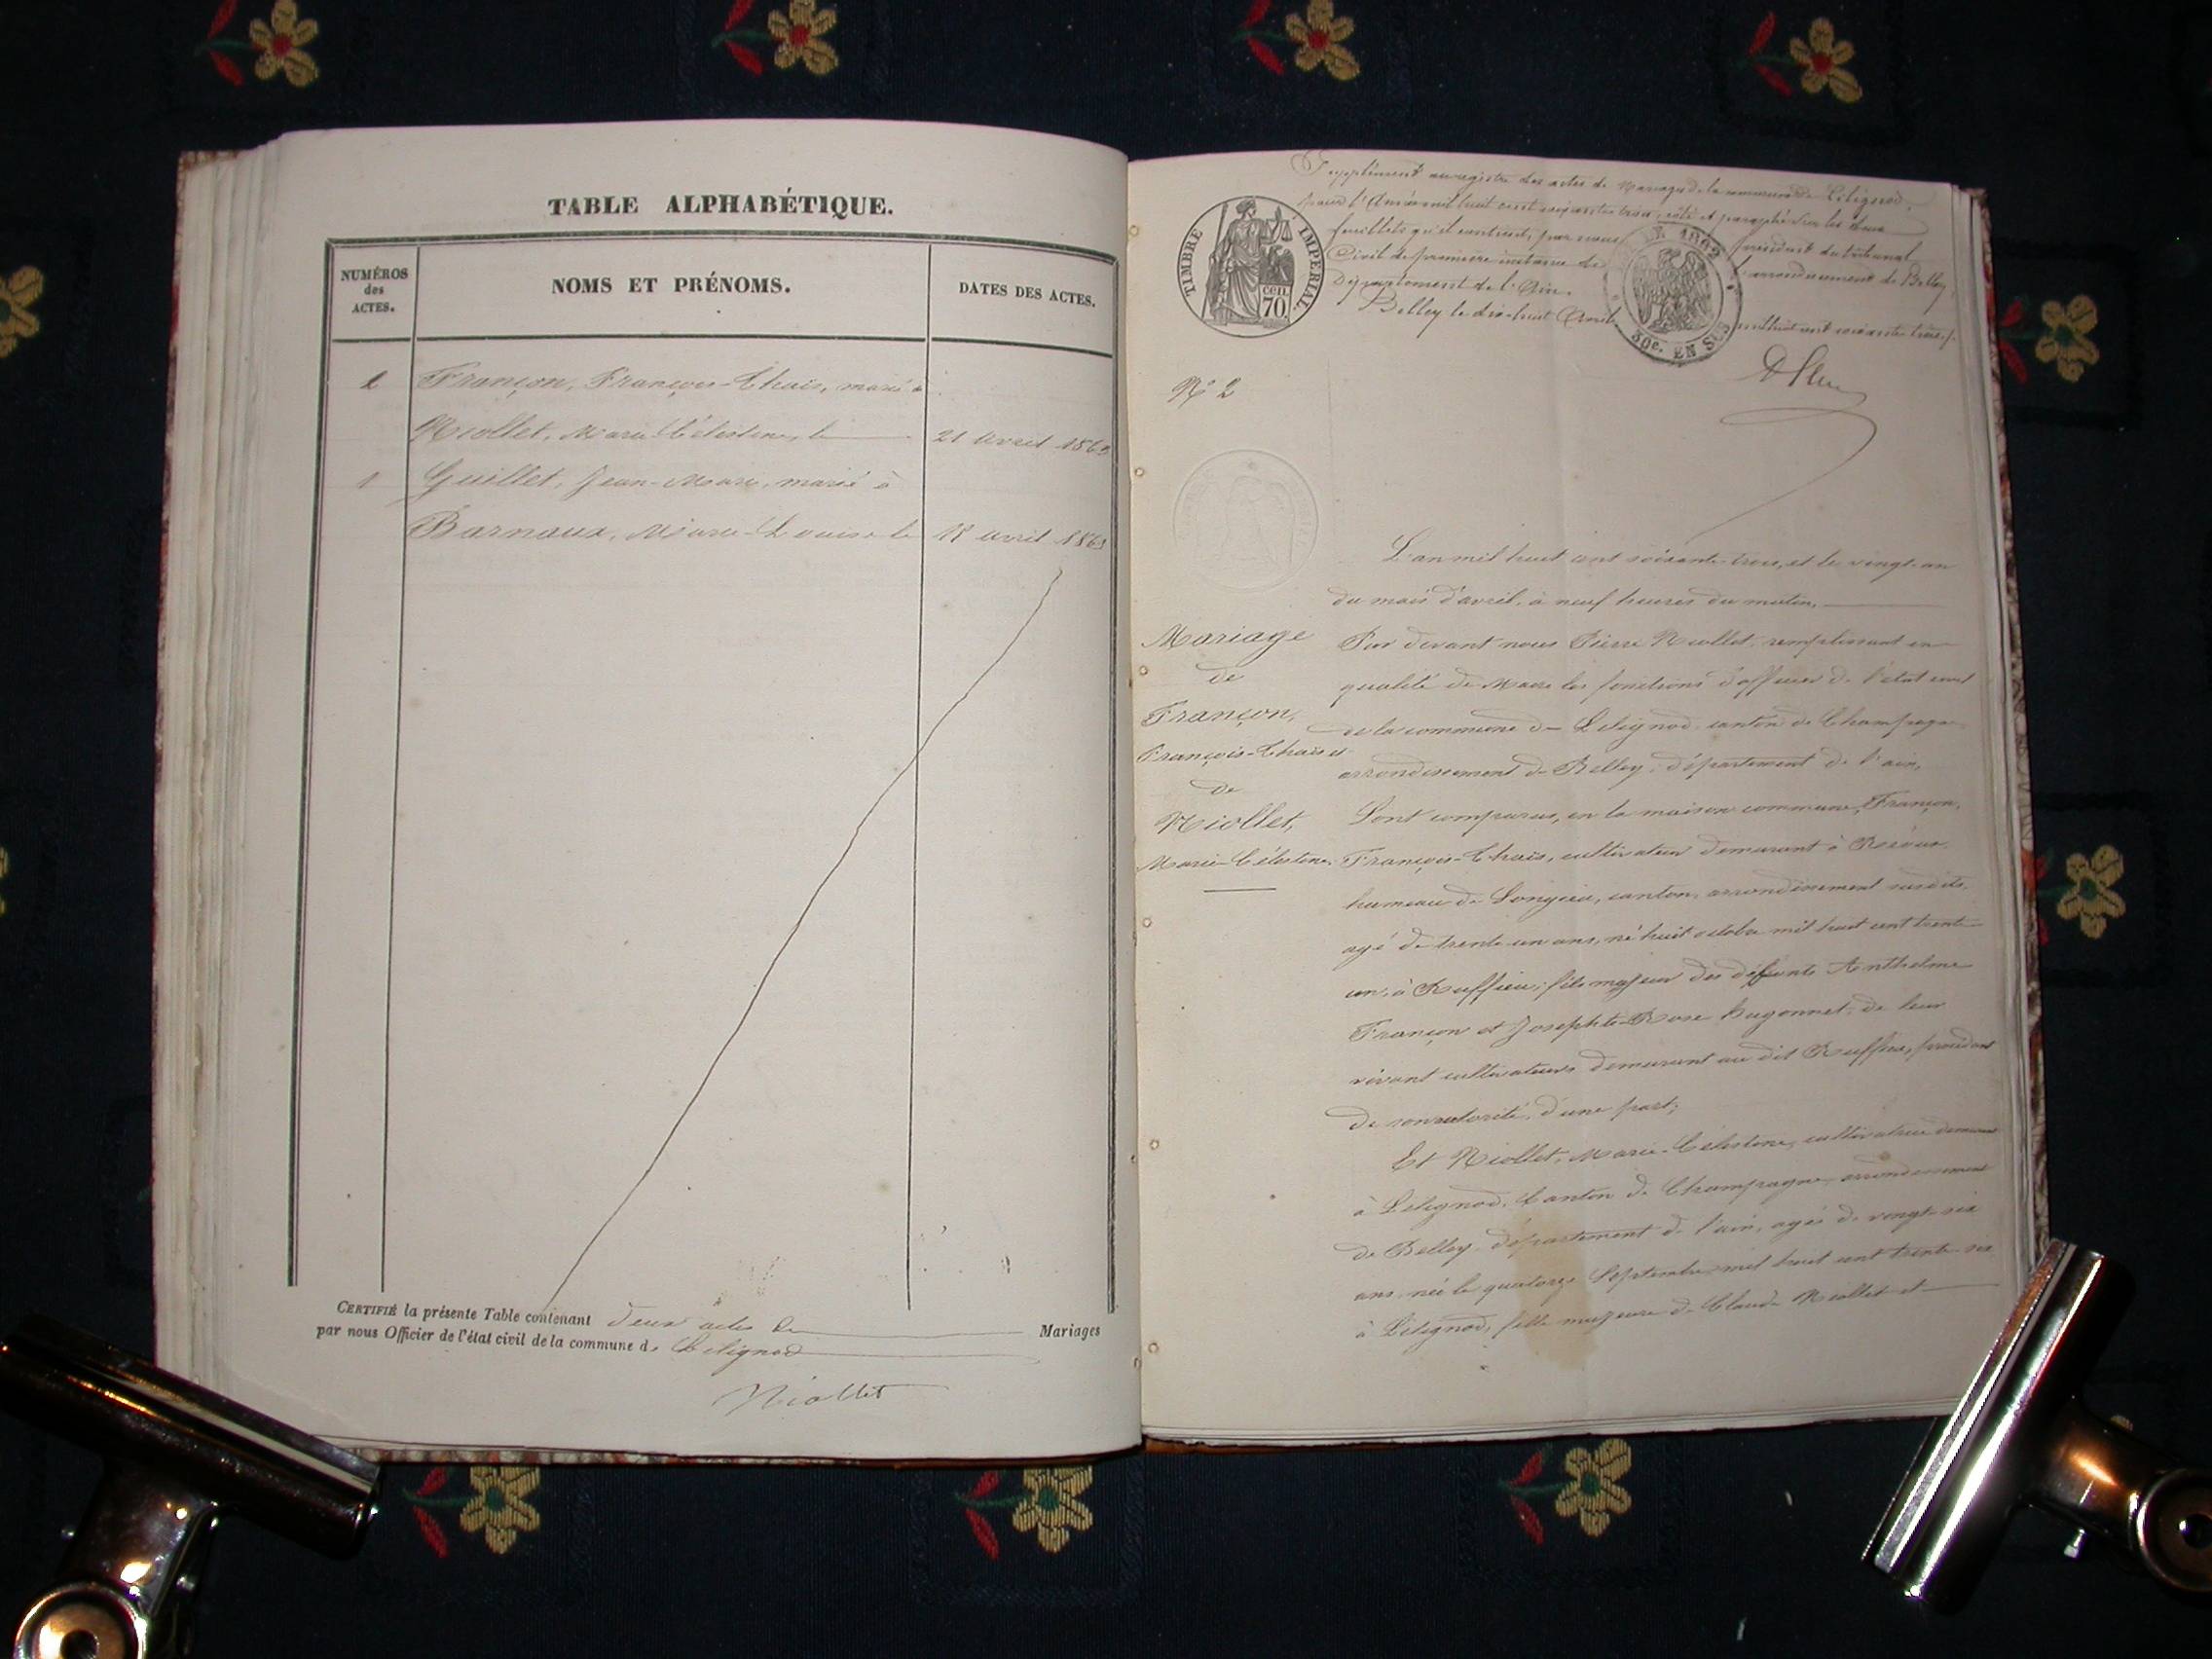 TABLE ALPHABÉTIQUE.
NUMÉROS
des
ACTES.
NOMS ET PRÉNOMS.
DATES DES ACTES.
2 Françon, François-Thaïs, marié à
Niollet, Marie Célestine, le 21 avril 1863
1 Guillet, Jean-Marie, marié à
Barnaux, Marie-Louise le 18 avril 1863
CERTIFIÉ la présente Table contenant deux actes de Mariages
par nous Officier de l'état civil de la commune de Lilignod
Niollet
Supplément au registre des actes de Mariages de la commune de Lilignod,
pour l'Année mil huit cent soixante trois, côté et paraphé sur les deux
feuillets qu'il contient, par nous président du tribunal
Civil de première instance de l'arrondissement de Belley,
Département de l'Ain.
Belley le dix-huit Avril mil huit cent soixante trois./.
TIMBRE IMPÉRIAL
70 cen.
1862
30c. EN SUS
N° 2
L'an mil huit cent soixante-trois, et le vingt-un
du mois d'avril, à neuf heures du matin,
Mariage
de
Françon,
François-Thaïs et
de
Niollet,
Marie-Célestine.
Par devant nous Pierre Niollet, remplissant en
qualité de Maire les fonctions d'officier de l'état civil
de la commune de Lilignod, canton de Champagne
arrondissement de Belley, département de l'ain,
Sont comparus, en la maison commune, Françon,
François-Thaïs, cultivateur demeurant à
hameau de Songieu, canton, arrondissement susdits,
agé de trente un ans, né huit octobre mil huit cent trente
un, à Ruffieu; fils majeur des défunts Anthelme
Françon et Josephte-Rose hugonnet, de leur
vivant cultivateurs demeurant au dit Ruffieu, procédant
de son autorité, d'une part;
Et Niollet, Marie-Célestine, cultivatrice demeurant
à Lilignod, Canton de Champagne, arrondissement
de Belley, département de l'ain, agée de vingt-six
ans, née le quatorze Septembre mil huit cent trente-six
à Lilignod, fille majeure de Claude Niollet et